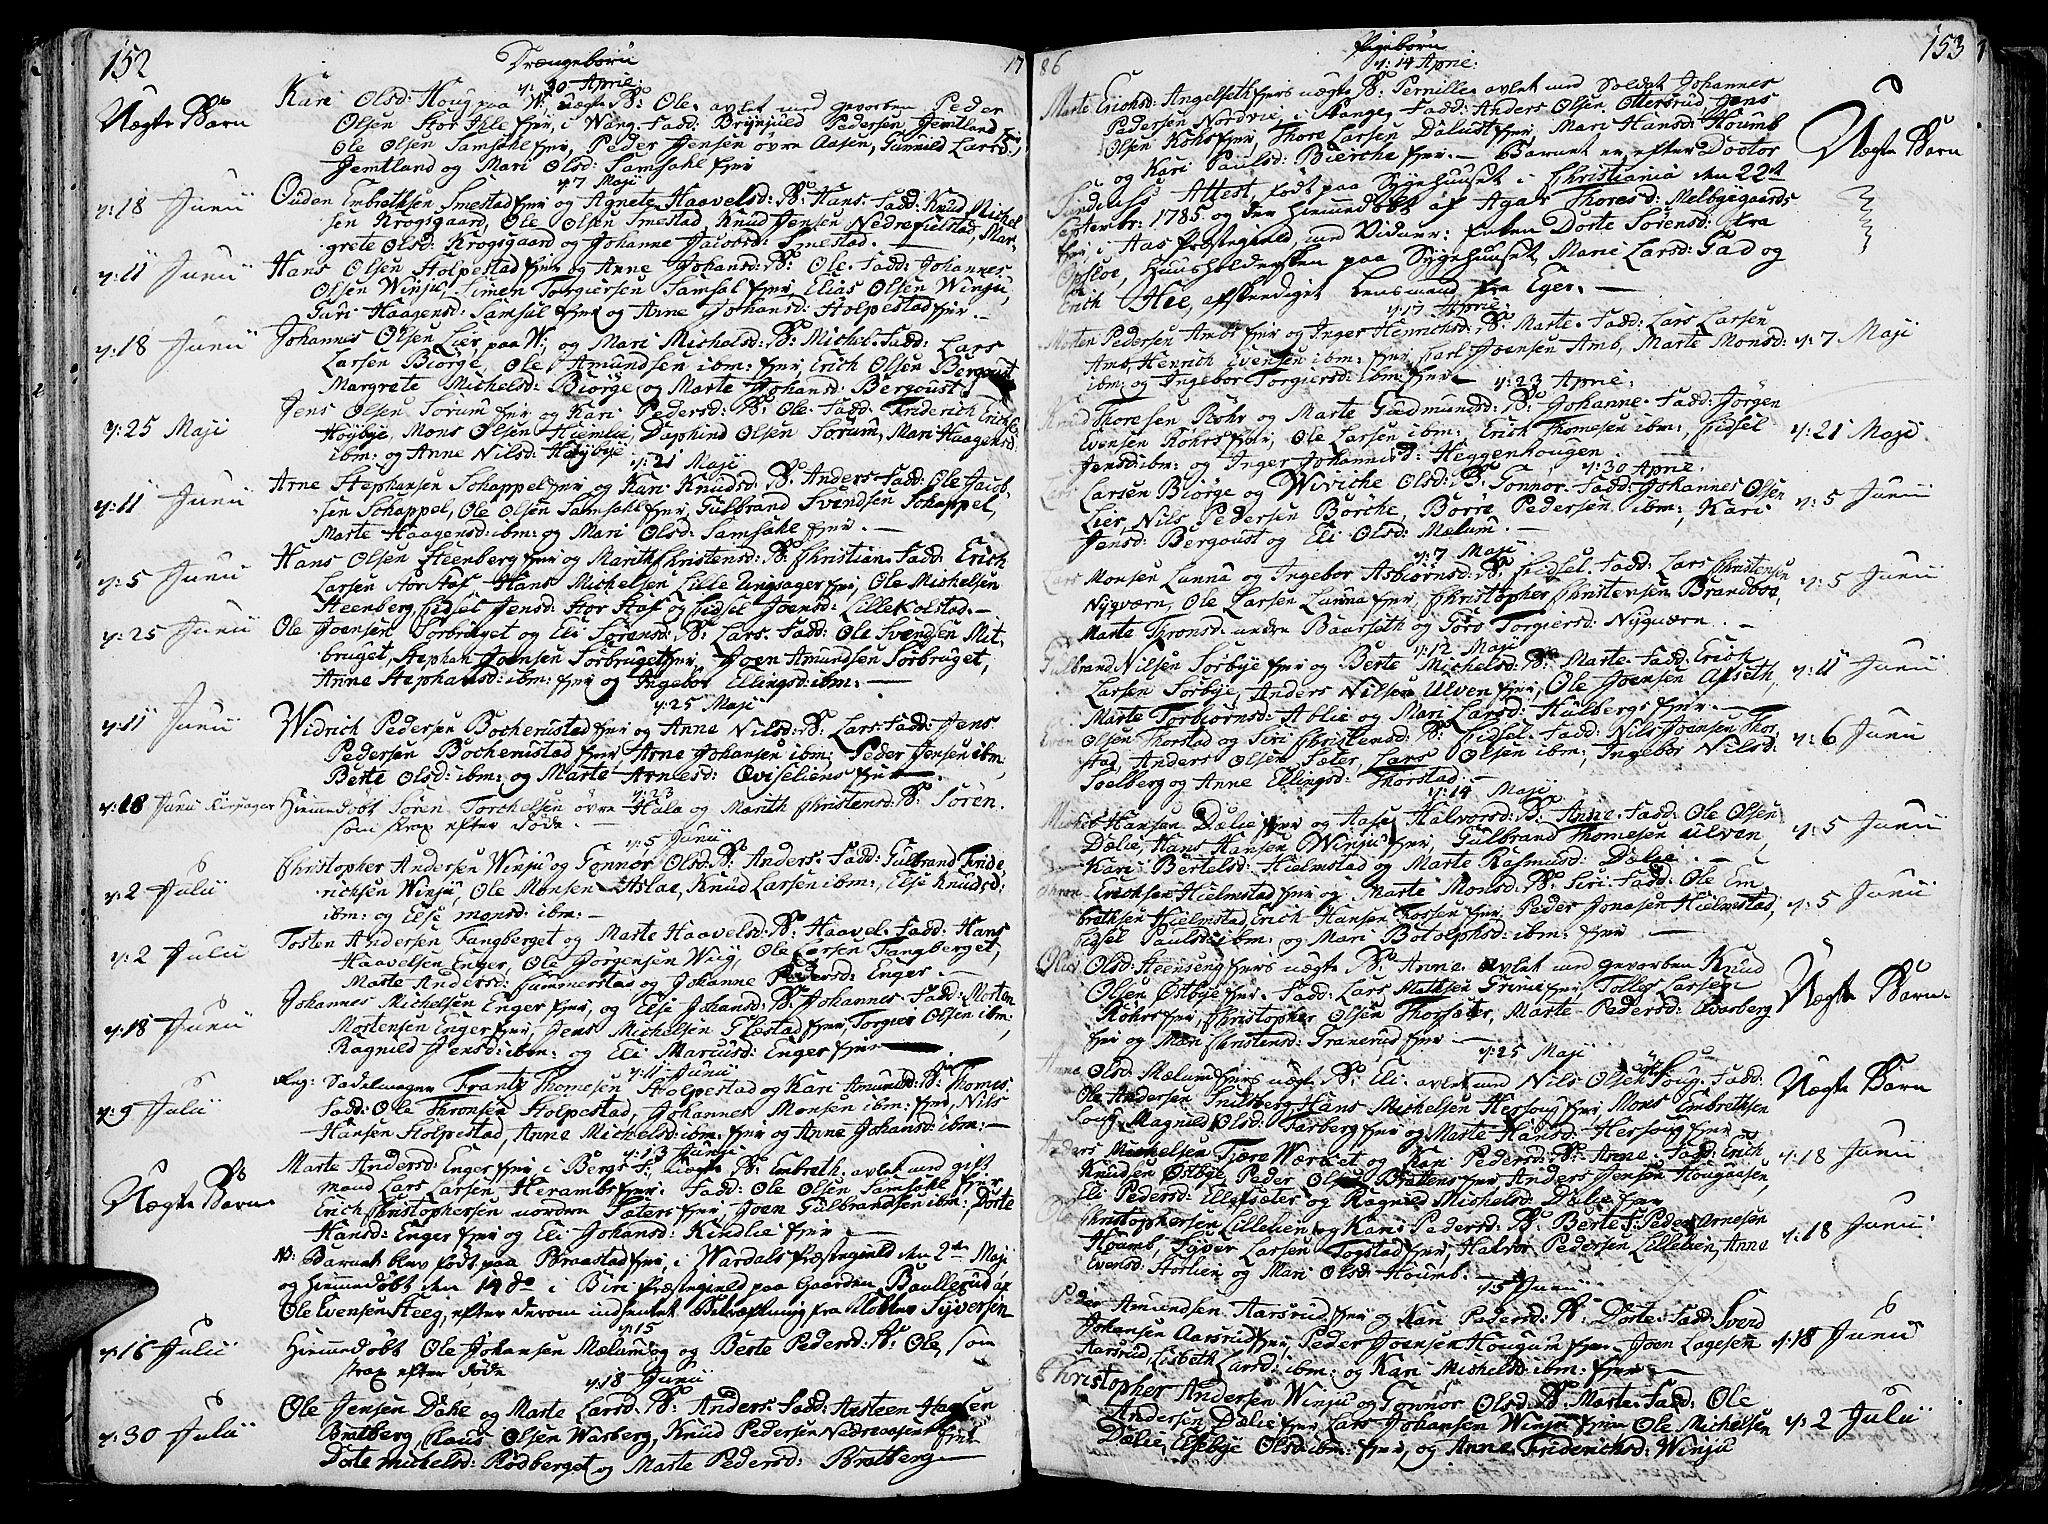 152
Drængebörn
17
d: 30 April:
Nægte Barn
Kari Olsd: Houg paa W: uægte B: Ole. avlet med gevorben Peder
Olsen Stor Ihle fjer, i Wang. Fadd: Brynjuld Pedersen Jemtland
Ole Olsen Samsahl fjer, Peder Jensen övre Aasen, Gunnild Larsd:
Jemtland og Mari Olsd: Samsahl fjer
d: 7 Maji
d: 18 Junii
Ouden Embrethsen Smestad fjer og Agnete Haavelsd: B: Hans. Fadd: Knud Michel
sen Krogsgaard, Ole Olsen Smestad, Knud Jensen Nedrefielstad, Mar,
grete Olsd: Krogsgaard og Johanne Jacobsd: Smestad.
d: 11 Junii
Hans Olsen Stolpestad fjer og Anne Johansd: B: Ole. Fadd: Johannes
Olsen Winju, Simen Torgiersen Samsal fjer, Elias Olsen Winju,
Guri Haagensd: Samsal fjer og Anne Johansd: Holpestad fjer.
d: 18 Junii
Johannes Olsen Lier, paa W; og Mari Michelsd: B: Michel. Fadd: Lars
Larsen Biörge, Ole Amundsen ibm: fjer, Erich Olsen Bergoust
Margrete Michelsd: Biörge og Marte Johansd: Bergoust.
d: 25 Maji
Jens Olsen Sorum fjer og Kari Pedersd: B: Ole. Fadd: Friderich Erichs
Höybye, Mons Olsen Hiemlie, Daphind Olsen Sorum, Mari Haagensd:
ibm: og Anne Nilsd: Höybye
d: 21 Maji
d: 11 Junii
Arne Stephansen Schappel fjer og Kari Knudsd: B: Anders. Fadd: Ole Jacob-
sen Schappel, Ole Olsen Samsahl fjer, Gulbrand Svendsen Schappel,
Marte Haagensd: ibm: og Mari Olsd: Samsahl fjer.
d: 5 Junii
Hans Olsen Steenberg fjer og Marith Christensd: B: Christian. Fadd: Erich
Larsen Stor Staf Hans Michelsen Lille Ungsager fjer, Ole Michelsen
Steenberg, Sidsel Jensd: Stor Staf og Sidsel Joensd: Lillekolstad.
d: 25 Junii
Ole Joensen Sorbruget og Eli Sorensd: B: Lars. Fadd: Ole Svendsen Mit-
bruget, Stephan Joensen Sorbruget fjer, Joen Amundsen Sorbruget,
Anne Stephansd: ibm: fjer og Ingebor Ellingsd: ibm:
d: 25 Maji
d: 11 Junii
Widrich Pedersen Bochenstad fjer og Anne Nilsd: B: Lars. Fadd: Jens
Pedersen Bochenstad fjer, Arne Johansen ibm: Peder Jensen ibm,
Berte Olsd: ibm: og Marte Arnesd: Qviseliens fjer
d: 23
d: 18 Junii
Hiemedöbt Sören Torchelsen övre Hala og Marith Christensd: B: Sören.
som strax efter döde.
d: 5 Junii
d: 2 Julii
Christopher Andersen Winju og Gonnor Olsd: B: Anders. Fadd: Gulbrand Fride,
richsen Winju, Ole Monsen Aslae, Knud Larsen ibm:, Else Knudsd:
ibm: og Else Monsd: ibm:
d: 2 Julii
Tosten Andersen Fangberget og Marte Haavelsd: B: Haavel. Fadd: Hans
Haavelsen Enger, Ole Jorgensen Wiig, Ole Larsen Fangberget,
Marte Andersd: Gummerstad og Johanne Pedersd: Enger.
d: 18 Junii
Johannes Michelsen Enger fjer, og Else Johansd: B: Johannes. Fadd: Morten
Mortensen Enger fjer, Jens Michelsen Glæstad fjer, Torgier Olsen ibm:,
Ragnild Jensd: ibm: og Eli Marcusd: Enger fjer
d: 11 Junii
d: 9 Julii
Sadelmager Frantz Thomesen Stolpestad og Kari Amundsd: B: Thomes
Fadd: Ole Thronsen Stolpestad, Johannes Monsen ibm: fjer, Nils
Hansen Stolpestad, Anne Michelsd: ibm. fjer og Anne Johansd: ibm:
d: 13 Junii
Nægte Barn
Marte Andersd: Enger fjer, i Bergs S: uægte B: Embreth. avlet med gift
mand Lars Larsen Herambs fjer. Fadd: Ole Olsen Samsahl fjer,
Erich Christophersen nordre Sæters fjer, Joen Gulbrandsen ibm:, Dorte
Hansd: Enger fjer og Eli Johansd: Kindlie fjer
NB: Barnet blev födt paa Braastad fjer, i Wardals Præstegield den 2den Maji
og hiemedöbt den 14 do i Biri Præstegield paa Gaarden Baulleruud af
Ole Evensen Steeg, efter derom indsendt Bekræftning fra Klokker Syversen
d: 15
d: 16 Julii
Hiemedöbt Ole Johansen Mælum og Berte Pedersd: B: Ole, som
strax efter döde
d: 18 Junii
d: 30 Julii
Ole Jensen Dahl og Marte Larsd: B: Anders. Fadd: Arsteen Hansen
Bratberg, Claus Olsen Warberg, Knud Pedersen Nedreaasen fjer
Dorte Michelsd: Rödberget og Marte Pedersd: Bratberg
86
Pigebörn
153
d: 14 April:
Marte Erichsd: Angelseth fjers uægte B: Pernille. avlet med Soldat Johannes
Pedersen Nordvie, i Stange. Fadd: Anders Olsen Ottersrud, Jens
Olsen Kohs fjer, Thore Larsen Dalust fjer, Mari Hansd: Houmb
og Kari Paulsd: Bierche fjer. Barnet er efter Doctor
Attest, födt paa Sygehuuset i Christiania den 22de
September: 1785 og der hiemmedöbt af Agar Thoresd: Melbyegaards
fjer, i Aas Præstegield, med Vidner: Enken Dorte Sörensd: fra
Opsloe, Huusholdersken paa Sygehuuset, Marie Larsd: Gad og
Erich Hee, afskeediget Lensmand fra Eger.
Nægte Barn
d: 17 April:
Morten Pedersen Amb fjer og Inger Henrichsd: B: Marte. Fadd: Lars Larsen
Amb, Henrich Evensen ibm: fjer, Carl Joensen Amb, Marte Monsd:
ibm: og Ingebor Torgiersd: ibm: fjer
d: 7 Maji
d: 23 April:
Knud Thoresen Röhr og Marte Gudmundsd: B: Johanne. Fadd: Jörgen
Evensen Röhrs fjer, Ole Larsen ibm: Erich Thomesen ibm: Sidsel
Jensd: ibm: og Inger Johannesd: Heggenhougen.
d: 21 Maji
d: 30 April:
Lars Larsen Biörge og Wiviche Olsd: B: Gonnor. Fadd: Johannes Olsen
Lier, Nils Pedersen Börche, Börre Pedersen ibm:, Kari
Jensd: Bergoust og Eli Olsd: Mælum.
d: 5 Junii
d: 7 Maji
Lars Monsen Lunna og Ingebor Asbiörnsd: B: Sidsel. Fadd: Lars Christensen
Nyqværn, Ole Larsen Lunna fjer, Christopher Christensen Brandboa,
Marte Thronsd: nedre Baarseth og Göro Torgiersd: Nyqværn.
d: 5 Junii
d: 12 Maji
Gulbrand Nilsen Sörbye fjer og Berte Michelsd: B: Marte. Fadd: Erich
Larsen Sorbye, Anders Nilsen Ulven fjer, Ole Joensen Alseth,
Marte Torbiornsd: Ablie og Mari Larsd: Hulbergs fjer.
d: 11 Junii
Even Olsen Thorstad og Siri Christensd: B: Sidsel. Fadd: Nils Joensen Thor,
stad, Anders Olsen Sæter, Lars Olsen ibm:, Ingebor Nilsd:
Soelberg og Anne Ellingsd: Thorstad.
d: 6 Junii
d: 14 Maji
Michel Hansen Dælie fjer og Aase Halvorsd: B: Anne. Fadd: Ole Olsen
Dælie, Hans Hansen Winju fjer, Gulbrand Thomesen Ulven,
Kari Bertelsd: Hielmstad og Marte Rasmusd: Dælie.
d: 5 Junii
Thron Erichsen Hielmstad fjer og Marte Monsd: B: Siri. Fadd: Ole Em,
brethsen Hielmstad, Erich Hansen Fossen fjer, Peder Jonasen Hielmstad,
Sidsel Paulsd: ibm: og Mari Botolphsd: ibm: fjer
d: 5 Junii
Olsd: Steenseng fjers uægte B: Anne. avlet med gevorben Knud
Olsen Östbye fjer. Fadd: Lars Mathsen Grime fjer, Tolleg Larsen
Röhrs fjer, Christopher Olsen Thorsæter, Marte Pedersd: Qvarberg
fjer og Mari Christensd: Tranerud fjer
Nægte Barn.
d: 25 Maji
Anne Olsd: Mælum fjers uægte B: Eli. avlet med Nils Olsen Soug. Fadd:
Ole Andersen Frilsberg, Hans Michelsen Hersoug fjer, Mons Embrethsen
Soug, Magnild Olsd: Farberg fjer og Marte Hansd: Hersoug fjer.
Nægte Barn
Anders Michelsen Tiære Wærket og Kari Pedersd: B: Anne. Fadd: Erich
Knudsen Östbye, Peder Olsen Brattens fjer, Anders Jensen Hougaasen,
Eli Pedersd: Ellefsæter og Ragnild Michelsd: Dælie fjer
d: 18 Junii
Ole Christophersen Lillelien og Kari Pedersd: B: Berte. F: Peder Arnesen
Houmb, Syver Larsen Togstad fjer, Halvor Pedersen Lillelien, Anne
Evensd: Storlien og Mari Olsd: Houmb.
d: 18 Junii
d: 5 Junii
Peder Amundsen Aarsrud fjer og Kari Pedersd: B: Dorte. Fadd: Svend
Johansen Aarsrud fjer, Peder Joensen Hougum fjer, Joen Lagesen
Aarsrud, Lisbeth Larsd: ibm: og Kari Michelsd: ibm. fjer.
d: 18 Junii
Christopher Andersen Winju og Gonnor Olsd: B: Marte. Fadd: Ole
Andersen Dælie fjer, Lars Johansen Winju fjer, Ole Michelsen
Dælie, Elsebye Olsd: ibm: fjer, og Anne Friderichsd: Winju
d: 2 Julii